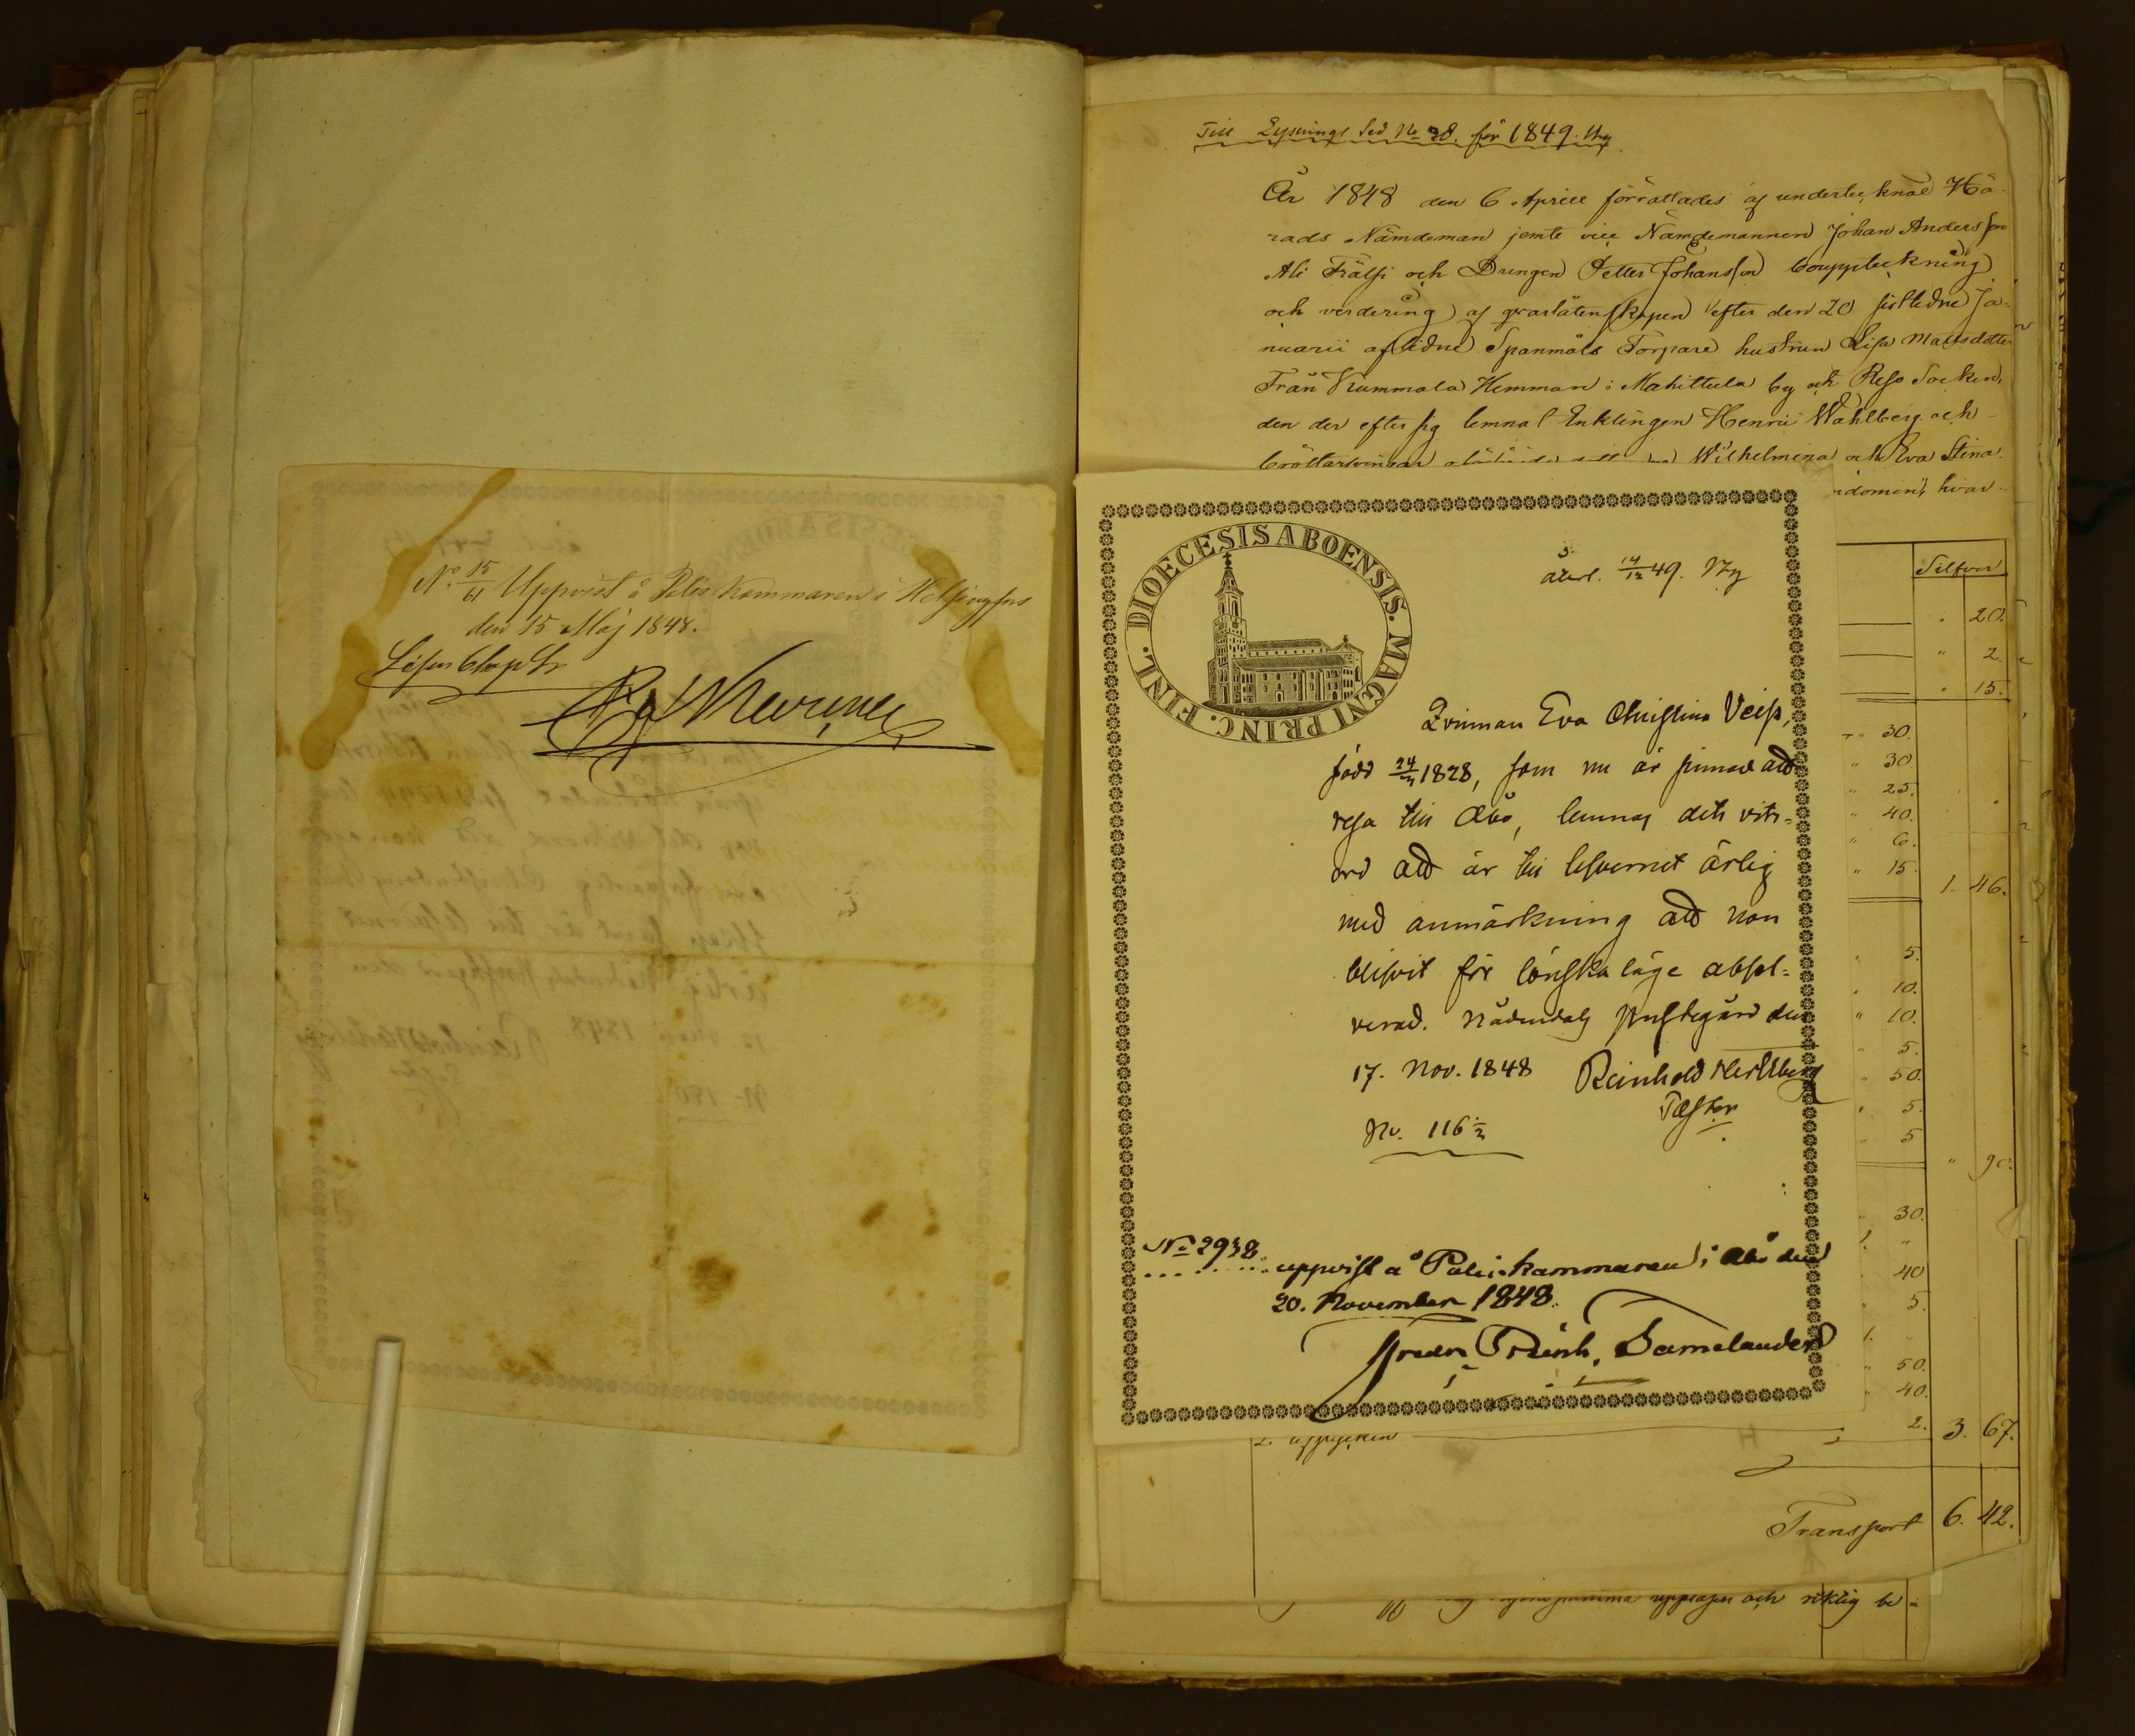 No 15/61 Uppvist å Polis Kammaren i Helsingfors
den 15 Maj 1848.
Till Lysnings Sed No 28. för 1849.
År 1848 den 6 Aprill förrättades af undertecknad Hä-
rads Nämdeman jemte vice Nämdemannen Johan Andersson
Ali Frälsi och Drengen Petter Johansson bouppteckning
och verdering af qvarlåtenskapen efter den 20 sistledne Ja-
nuarii aflidne Spanmåls Torpare hustrun Lisa Mattsdotter
Från Kummala Hemman i Mahittula by och Reso Socken,
den der efter sig lemnat Enklingen Henric Wahlberg och
Wilhelmina och Eva Stina.
hvar
Silfver
20.
2.
15.
30.
30.
25.
40.
6.
15.
1. 46.
5.
10.
10.
5.
50.
5.
5
90.
30.
1. "
40
5.
1. "
50.
40.
2. 3. 67.
Transport 6. 42.
upptagen och riktig be-
DIOECESIS ABOENSIS. MAGNI PRINC. FINL.
återl. 14/12 49.
Qvinnan Eva Christina Veiss,
född 24/ 1828, som nu är sinnad att
resa till Åbo, lemnas det vits-
ord att är till lefvernet ärlig
med anmärkning att hon
blifvit för lönskaläge absol-
verad. Nådendals Prestegård den
17. Nov. 1848 Reinhold Hertzberg
Pastor
No. 116
No 2938
uppvist å Polis kammaren i Åbo den
20. November 1848.